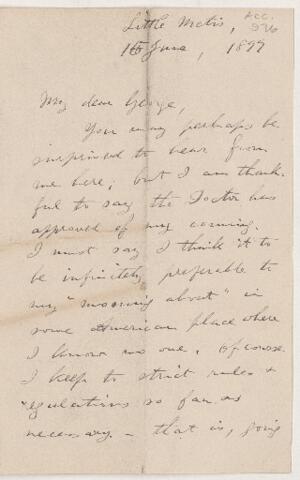 Little Metis,
ACC.
976
15 June, 1897
My dear George,
You may perhaps be
surprised to hear from
me here; but I am thank-
ful to say the Doctor has
approved of my coming.
I must say I think it to
be infinitely preferable to
my "mooning about" in
some American place where
I know no one. Of course
I keep to strict rules &
regulations so far as
necessary - that is, going